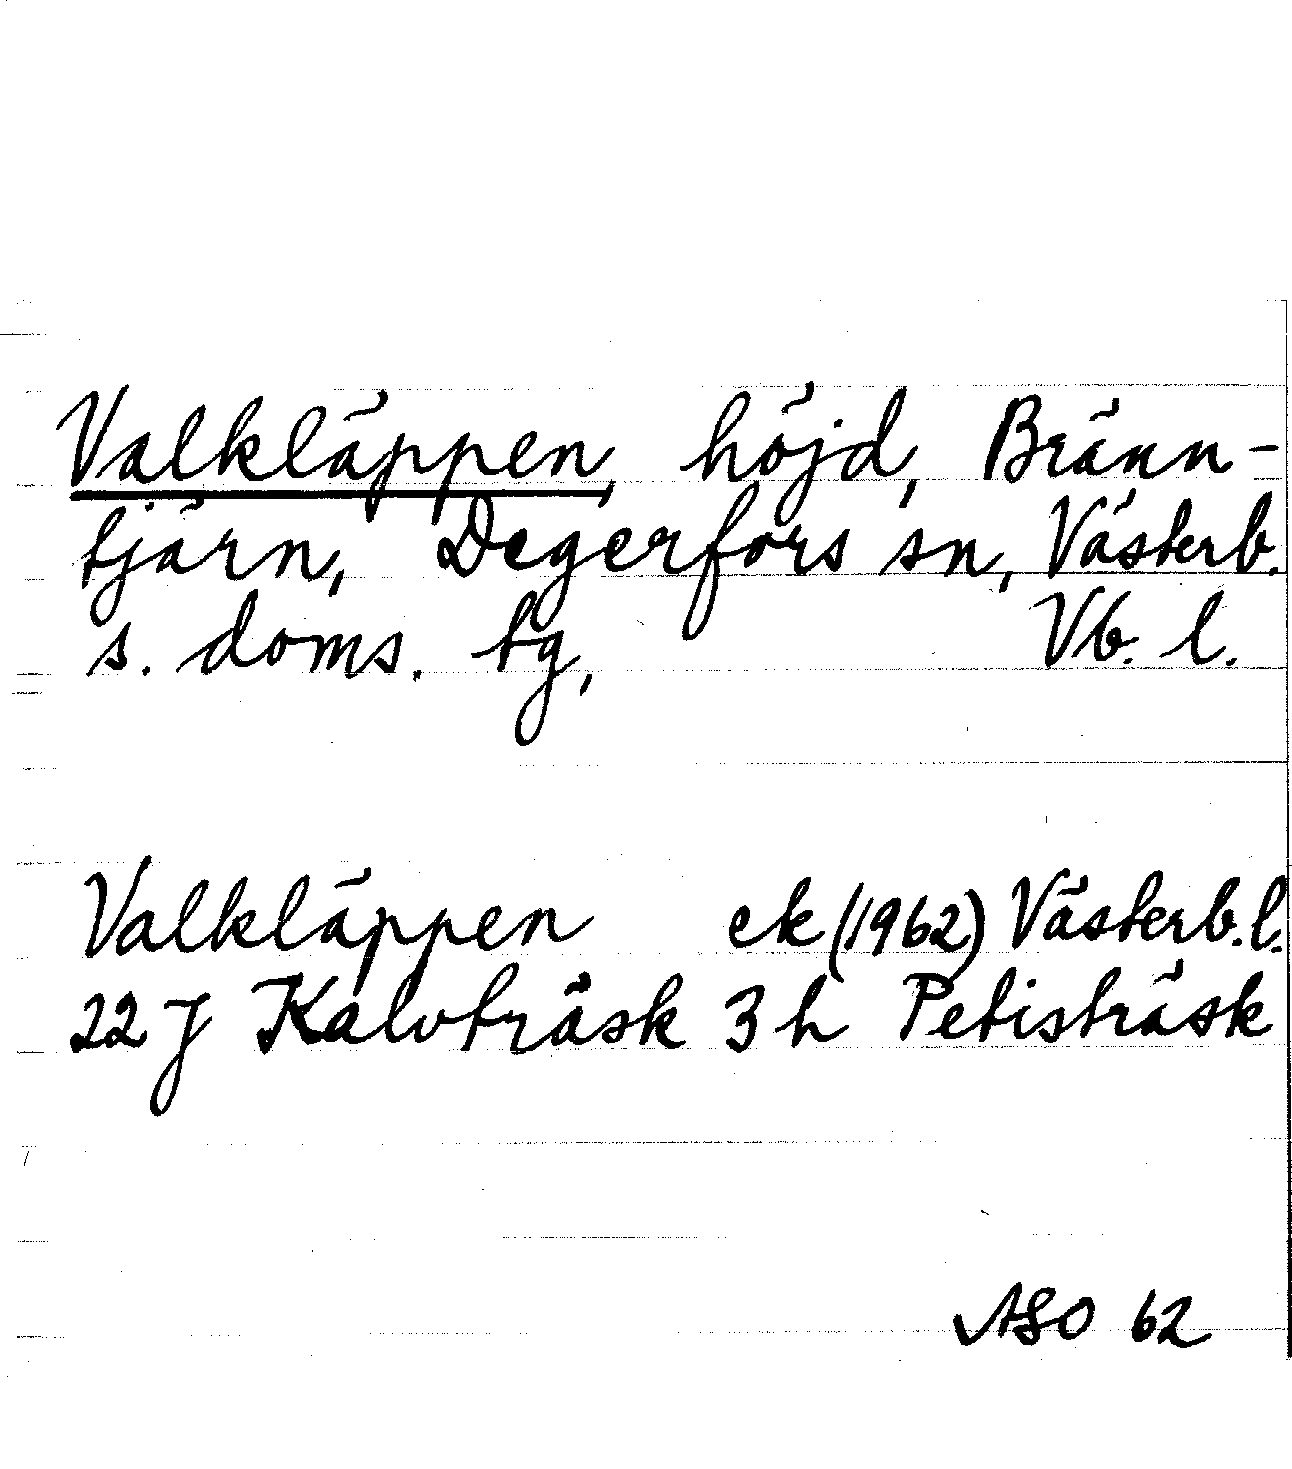 Valkläppen, höjd, Bränn-
tjärn, Degerfors sn, Västerb.
s. doms. tg, Vb. l.
Valkläppen ek (1962) Västerb. l.
22 J Kalvträsk 3 h Petisträsk
ASO 62